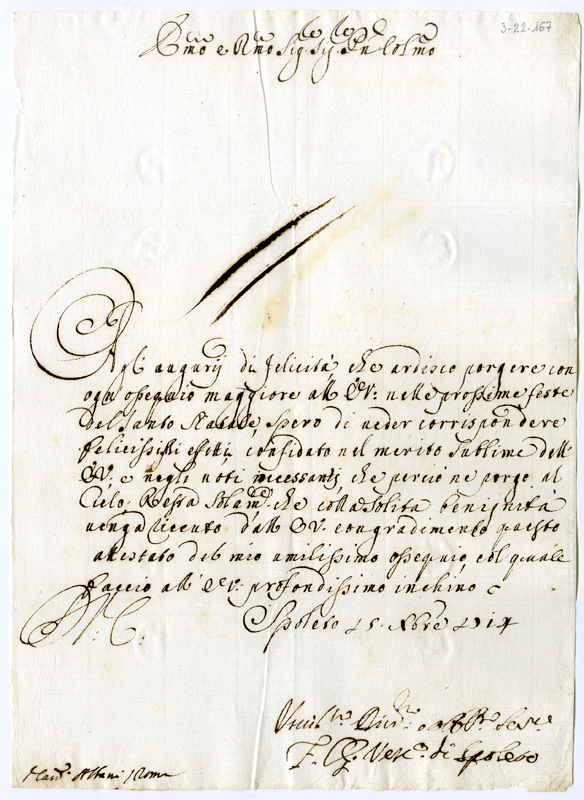 3-22-167
Em̃o e Rm̃o Sig.re Sig.re Pñ Colmo
Agl' augurij di felicità che ardisco porgere con
ogni ossequio maggiore all' E.V. nelle prossime feste
del Santo Natale, spero di veder corrispondere
felicissimi effetti, confidato nel merito sublime dell'
E.V. e negli voti incessanti, che perciò ne porgo al
Cielo. Resta solam.te che colla solita benignità
venga ricevuto dall' E.V. con gradimento questo
attestato del mio umilissimo ossequio, col quale
faccio all' E.V. profondissimo inchino
Spoleto 15. Xbre 1714
di Spoleto
Card. Albani Roma